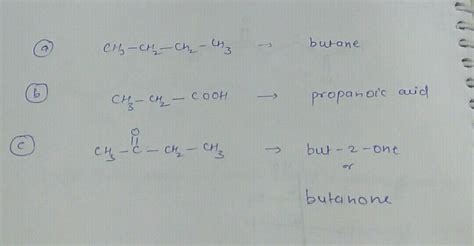 (a) CH3-CH2-CH2-CH3 → butane
(b) CH3-CH2-COOH → propanoic acid
O
(c) CH3-C-CH2-CH3 → but-2-one
or
butanone